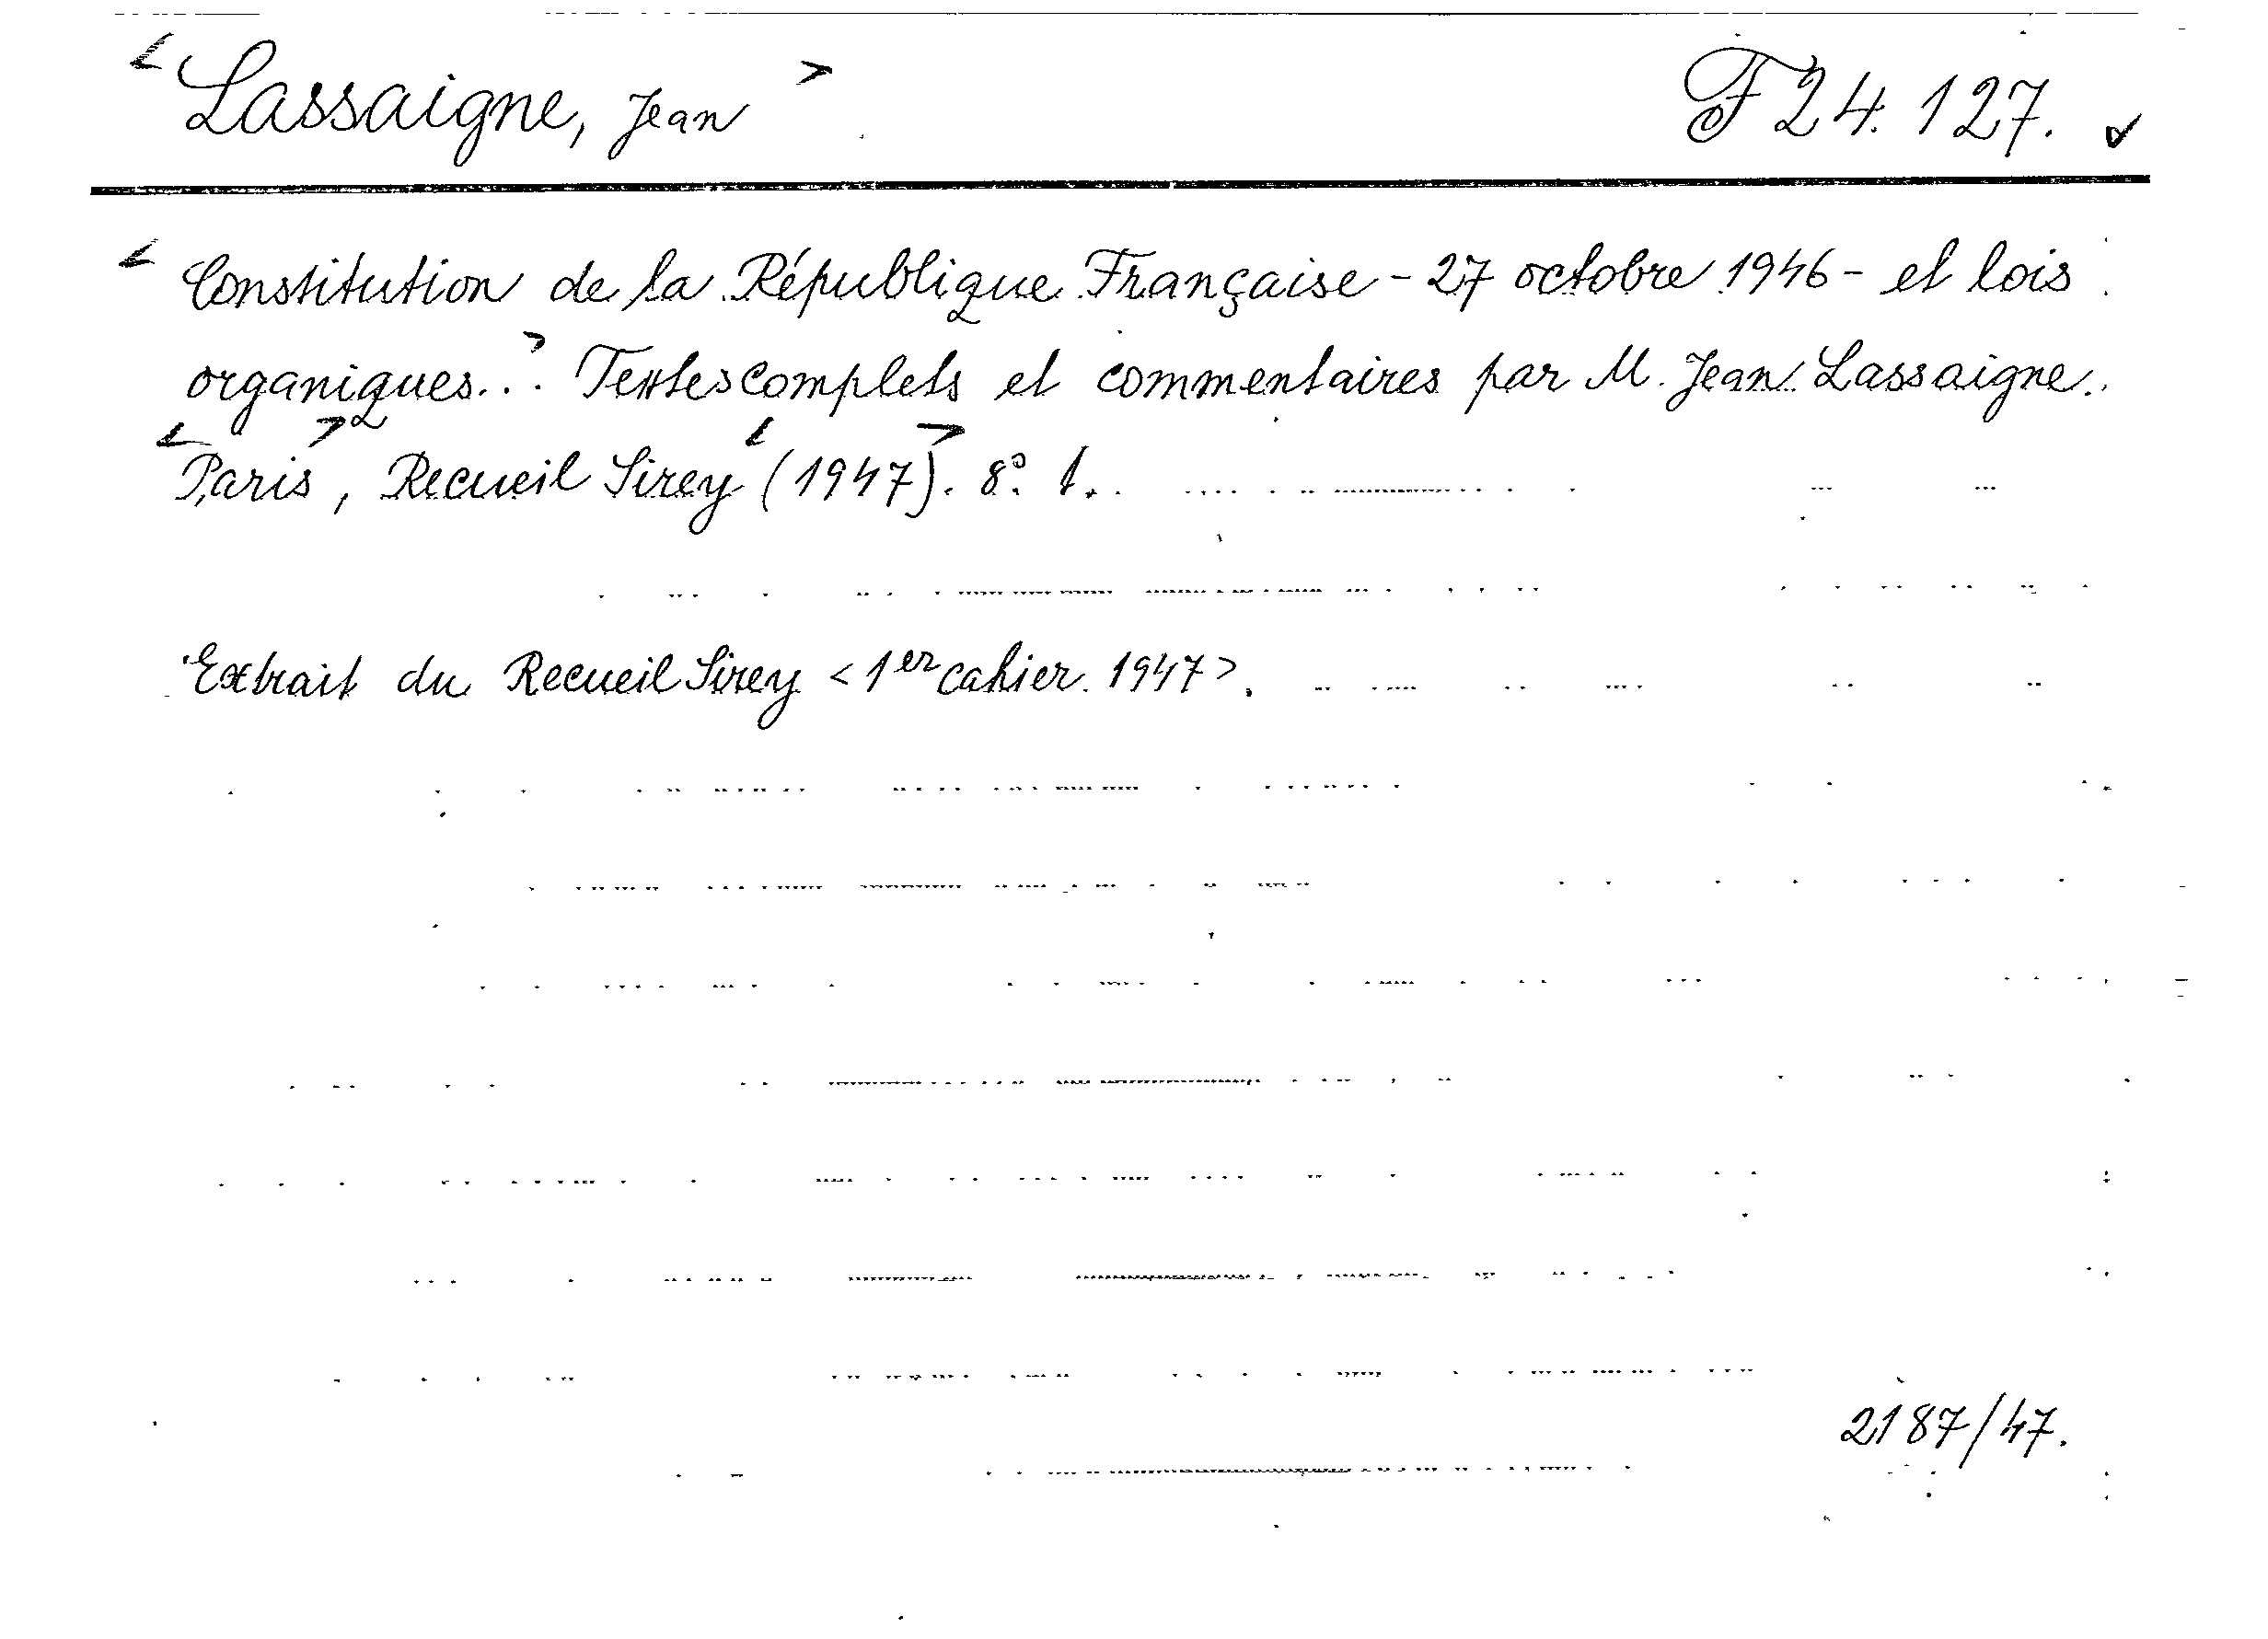 <Lassaigne, Jean> F 24.127.
<Constitution de la République Française - 27 octobre 1946 - et lois
organiques...> Textes complets et commentaires par M. Jean Lassaigne.
<Paris>, Recueil Sirey <(1947)>. 8° 1.
Extrait du Recueil Sirey <1er cahier. 1947>.
2187/47.